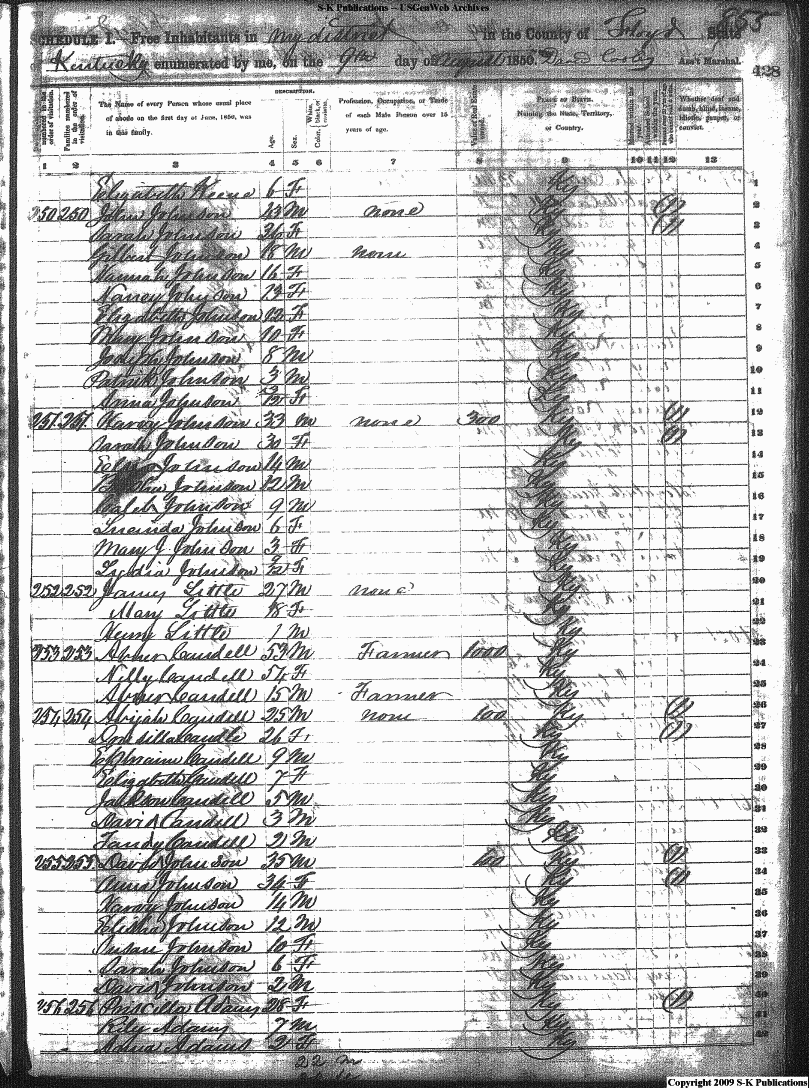 S-K Publications -- USGenWeb Archives
855
SCHEDULE I. Free Inhabitants in My district in the County of Floyd State
Kentucky enumerated by me, on the 9th day of August 1850. David Cooley Ass't Marshal.
428
DESCRIPTION.
The Name of every Person whose usual place of abode on the first day of June, 1850, was in this family.
Age.
Sex.
Profession, Occupation, or Trade of each Male Person over 15 years of age.
PLACE OF BIRTH.
Naming the State, Territory, or Country.
Whether deaf and dumb, blind, insane, idiotic, pauper, or convict.
1 2 3 4 5 6 7 8 9 10 11 12 13
Elizabeth Keene 6 F Ky 1
250 250 John Johnson 43 M none Ky (1) 2
Sarah Johnson 36 F Ky (1) 3
Gilbert Johnson 18 M none Ky 4
Hannah Johnson 16 F Ky 5
Nancy Johnson 13 F Ky 6
Elizabeth Johnson 12 F Ky 7
Mary Johnson 10 F Ky 8
Joseph Johnson 8 M Ky 9
Patrick Johnson 3 M Ky 10
Anna Johnson F Ky 11
251 251 Harvey Johnson 33 M none 300 Ky (1) 12
Sarah Johnson 30 F Ky (1) 13
Johnson 14 M Ky 14
Johnson 12 M Ky 15
Caleb Johnson 9 M Ky 16
Lucinda Johnson 6 F Ky 17
Mary J Johnson 3 F Ky 18
Lydia Johnson F Ky 19
252 252 James Little 27 M none Ky 20
Mary Little 18 F Ky 21
Henry Little 1 M Ky 22
253 253 Abner Caudell 53 M Farmer 1000 Ky 23
Nilly Caudell 54 F Ky 24
Abner Caudell 15 M Farmer Ky 25
254 254 Abijah Caudell 25 M none 100 Ky (1) 26
Caudle 26 F Ky (1) 27
Ephraim Caudell 9 M Ky 28
Elizabeth Caudell 7 F Ky 29
Jackson Caudell 5 M Ky 30
David Caudell 3 M Ky 31
Fandy Caudell 2 M Ky 32
255 255 David Johnson 35 M 100 Ky (1) 33
Anna Johnson 34 F Ky (1) 34
Harvey Johnson 14 M Ky 35
Elisha Johnson 12 M Ky 36
Susan Johnson 10 F Ky 37
Sarah Johnson 6 F Ky 38
David Johnson 2 M Ky 39
256 256 Priscilla Adams 28 F Ky (1) 40
Adams 7 M Ky 41
Adams 2 F Ky 42
22 M
Copyright 2009 S-K Publications